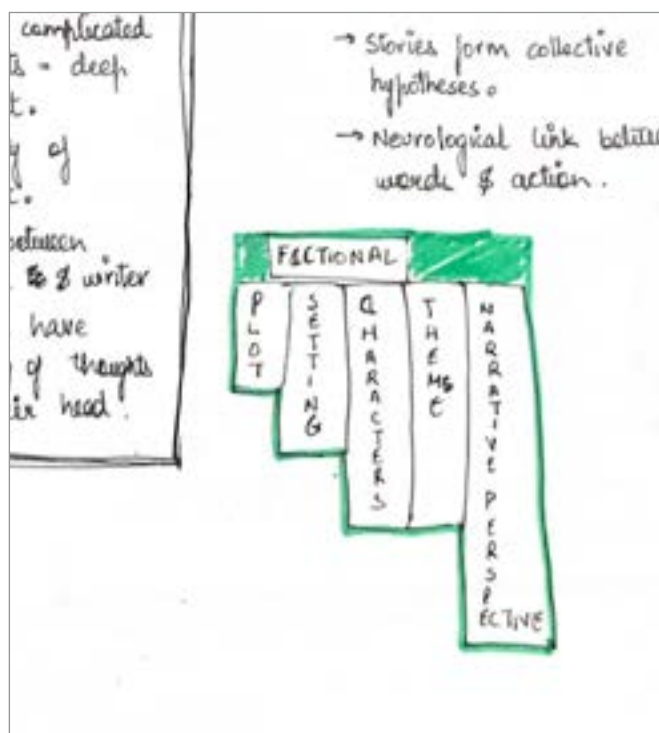 complicated
ts - deep
t.
y of
t.
between
& writer
have
g of thoughts
ir head.
→ Stories form collective
hypotheses.
→ Neurological link betwe
words & action.
FICTIONAL
PLOT
SETTING
CHARACTERS
THEME
NARRATIVE PERSPECTIVE